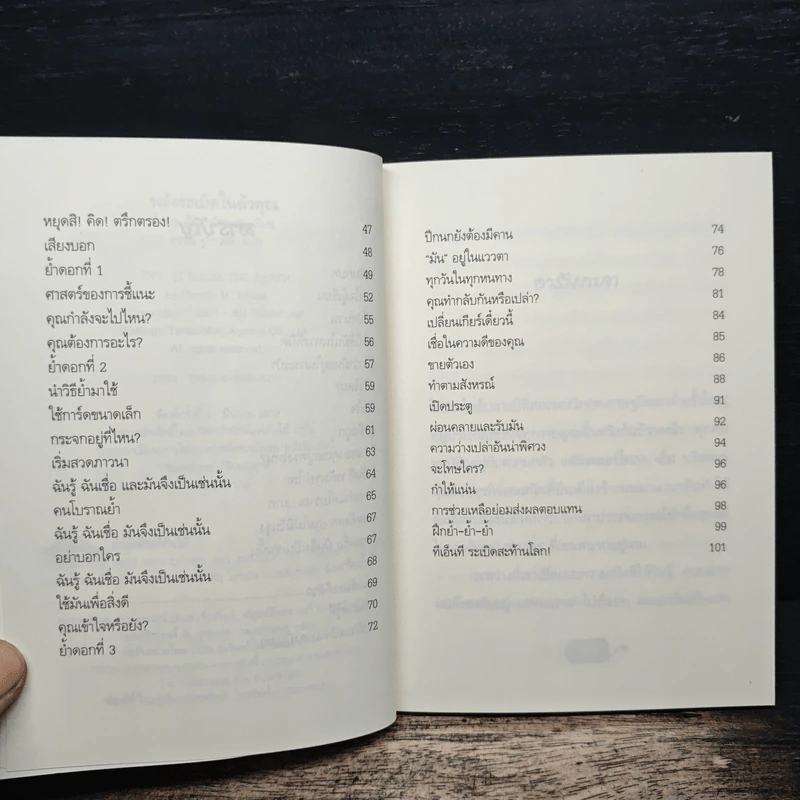 หยุดสิ! คิด! ตรึกตรอง! 47
เสียงบอก 48
ย้ำดอกที่ 1 49
ศาสตร์ของการชี้แนะ 52
คุณกำลังจะไปไหน? 55
คุณต้องการอะไร? 56
ย้ำดอกที่ 2 57
นำวิธีย้ำมาใช้ 59
ใช้การ์ดขนาดเล็ก 59
กระจกอยู่ที่ไหน? 61
เริ่มสวดภาวนา 63
ฉันรู้ ฉันเชื่อ และมันจึงเป็นเช่นนั้น 64
คนโบราณย้ำ 65
ฉันรู้ ฉันเชื่อ มันจึงเป็นเช่นนั้น 67
อย่าบอกใคร 67
ฉันรู้ ฉันเชื่อ มันจึงเป็นเช่นนั้น 68
ใช้มันเพื่อสิ่งดี 69
คุณเข้าใจหรือยัง? 70
ย้ำดอกที่ 3 72
ปีกนกยังต้องมีคาน 74
"มัน" อยู่ในแววตา 76
ทุกวันในทุกหนทาง 78
คุณทำกลับกันหรือเปล่า? 81
เปลี่ยนเกียร์เดี๋ยวนี้ 84
เชื่อในความดีของคุณ 85
ขายตัวเอง 86
ทำตามสังหรณ์ 88
เปิดประตู 91
ผ่อนคลายและรับมัน 92
ความว่างเปล่าอันน่าพิศวง 94
จะโทษใคร? 96
กำให้แน่น 96
การช่วยเหลือย่อมส่งผลตอบแทน 98
ฝึกย้ำ-ย้ำ-ย้ำ 99
ทีเอ็นที ระเบิดสะท้านโลก! 101